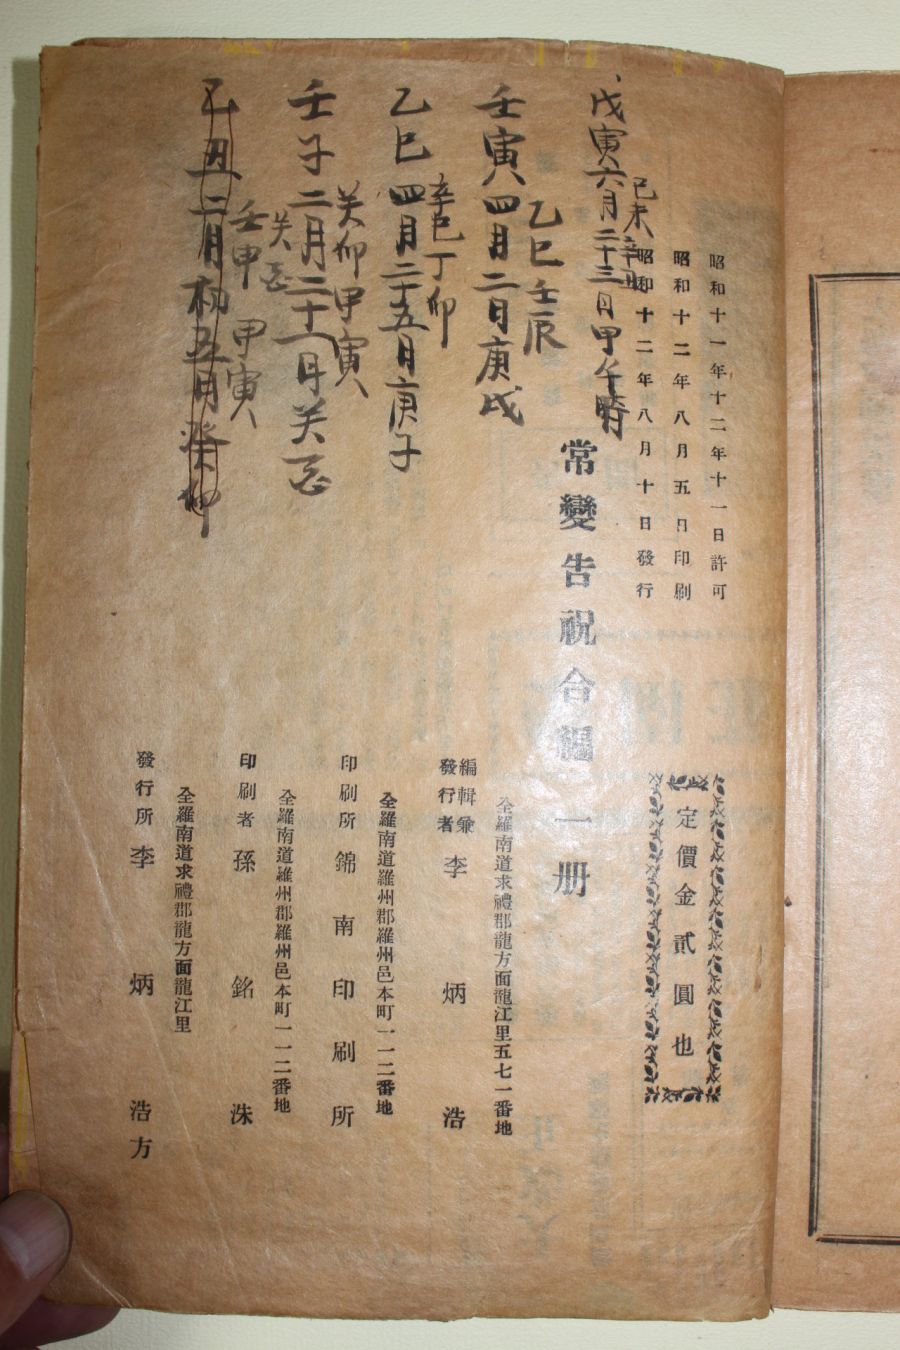 昭和十一年十二年十一日許可
昭和十二年八月五日印刷
昭和十二年八月十日發行
定價金貳圓也
常變告祝合編 一册
全羅南道求禮郡龍方面龍江里五七一番地
編輯兼
發行者 李炳浩
全羅南道羅州郡羅州邑本町一一二番地
印刷所 錦南印刷所
全羅南道羅州郡羅州邑本町一一二番地
印刷者 孫銘洙
全羅南道求禮郡龍方面龍江里
發行所 李炳浩方
己未
戊寅六月二十三日甲午時
乙巳壬辰
壬寅四月二日庚戌
辛巳丁卯
乙巳四月二十五日庚子
癸卯甲寅
壬子二月二十一日癸
壬申 甲寅
乙丑二月初五日癸卯